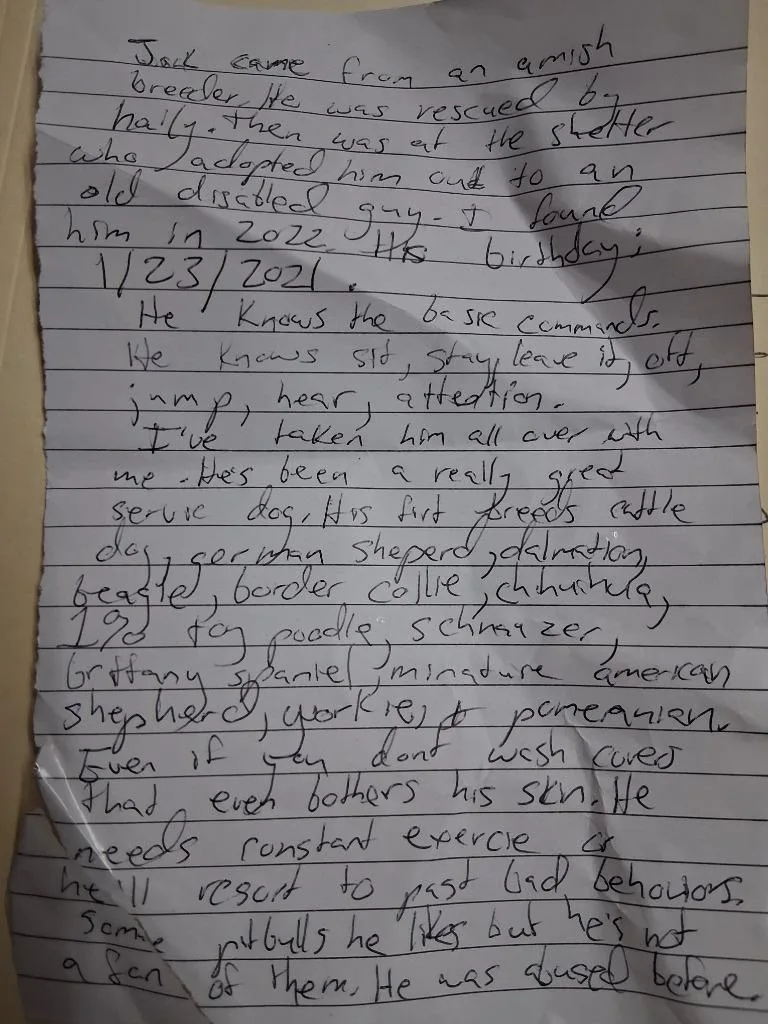 Jack came from an amish
breeder. He was rescued by
haily. then was at the shelter
who adopted him out to an
old disabled guy. I found
him in 2022. His birthday:
1/23/2021.
He knows the basic commands.
He knows sit, stay, leave it, off,
jump, hear, attention.
I've taken him all over with
me. He's been a really great
servic dog. His firt breeds cattle
dog, german sheperd, dalmation,
beagle, border collie, chhuihula,
1% toy poodle, schnauzer,
brittany spaniel, minature american
shepherd, yorkie, & pomeanian.
Even if you dont wash covers
that even bothers his skin. He
needs constant exercie or
he'll resort to past bad behaviors.
Some pitbulls he likes but he's not
a fan of them. He was abused before.